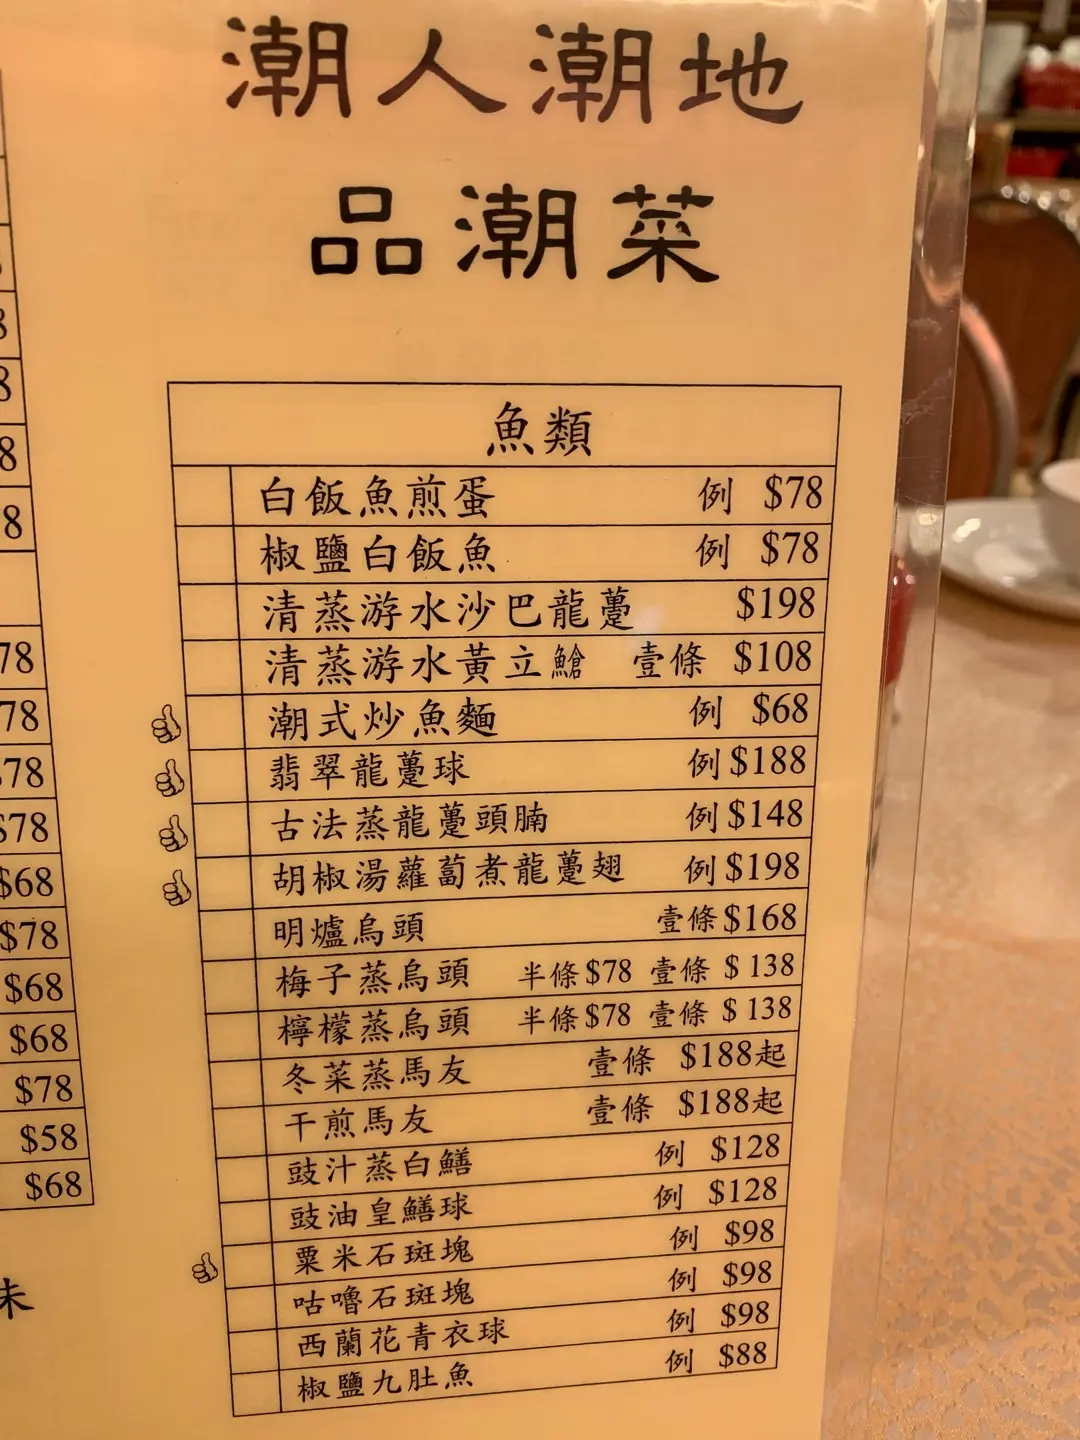 潮人潮地
品潮菜
魚類
白飯魚煎蛋 例 $78
椒鹽白飯魚 例 $78
清蒸游水沙巴龍躉 $198
清蒸游水黃立鱠 壹條 $108
潮式炒魚麵 例 $68
翡翠龍躉球 例 $188
古法蒸龍躉頭腩 例 $148
胡椒湯蘿蔔煮龍躉翅 例 $198
明爐烏頭 壹條 $168
梅子蒸烏頭 半條 $78 壹條 $138
檸檬蒸烏頭 半條 $78 壹條 $138
冬菜蒸馬友 壹條 $188起
干煎馬友 壹條 $188起
豉汁蒸白鱔 例 $128
豉油皇鱔球 例 $128
粟米石斑塊 例 $98
咕嚕石斑塊 例 $98
西蘭花青衣球 例 $98
椒鹽九肚魚 例 $88
8
8
8
8
78
78
78
$78
$68
$78
$68
$68
$78
$58
$68
味